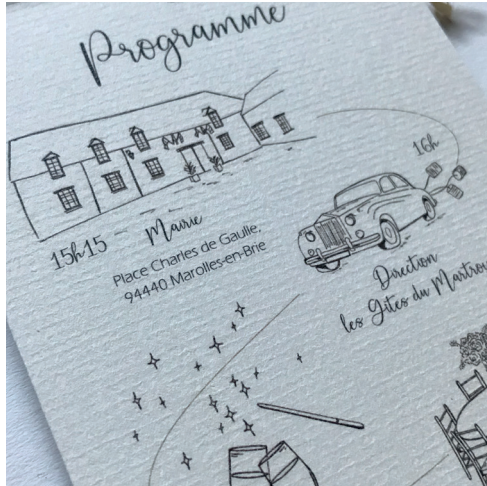 Programme
16h
15h15 Mairie
Place Charles de Gaulle,
94440 Marolles-en-Brie
Direction
les Gîtes du